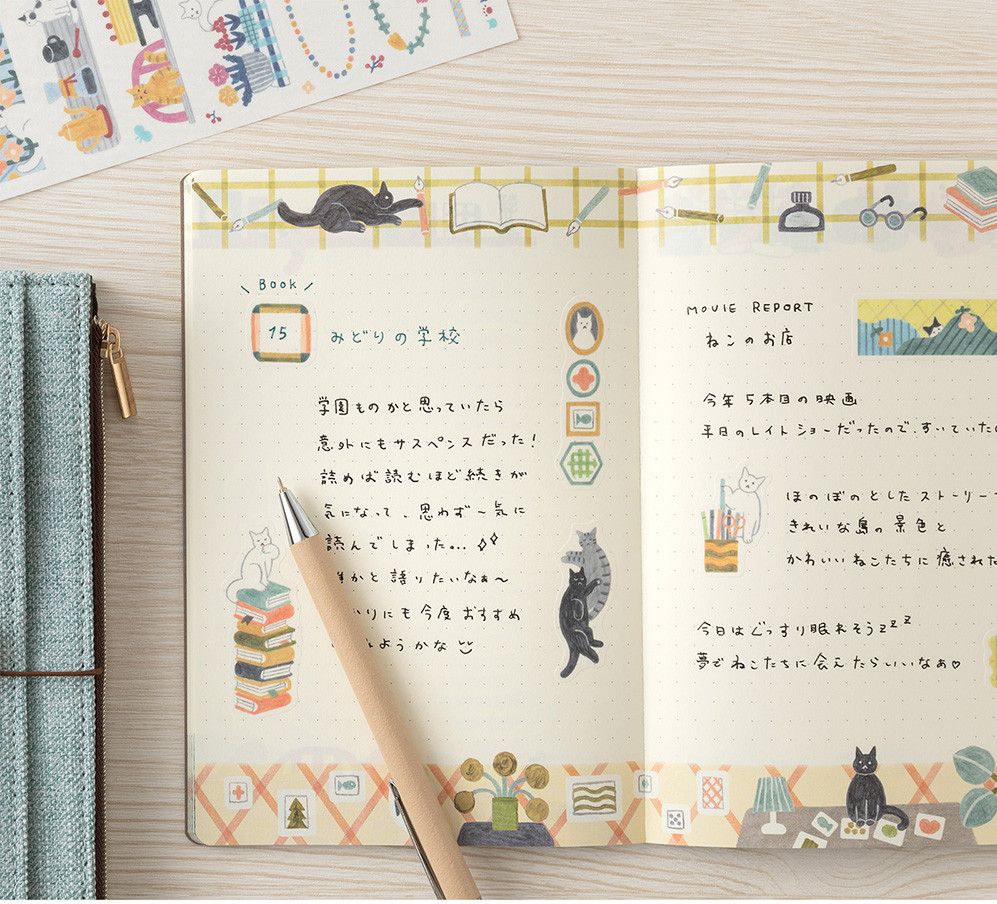 Book
15
みどりの学校
学園ものかと思っていたら
意外にもサスペンスだった！
読めば読むほど続きが
気になって、思わず一気に
読んでしまった…
かと語りたいなぁ〜
りにも今度おすすめ
ようかな
MOVIE REPORT
ねこのお店
今年5本目の映画
平日のレイトショーだったので、すいていた
ほのぼのとしたストーリー
きれいな島の景色と
かわいいねこたちに癒された
今日はぐっすり眠れそうzzz
夢でねこたちに会えたらいいなぁ♡